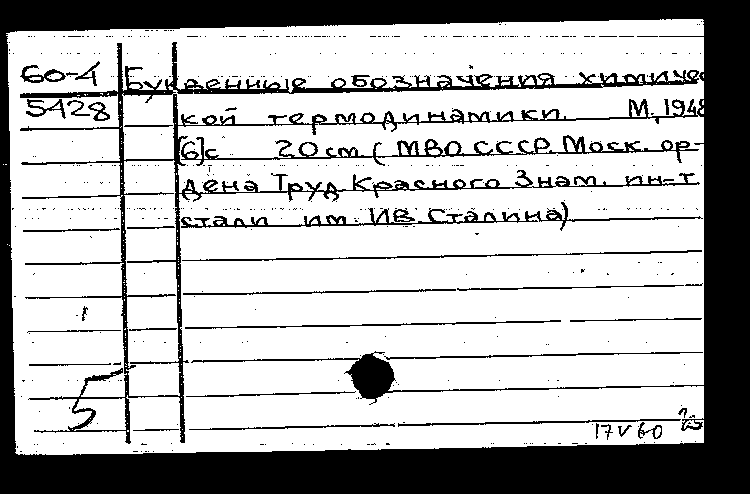 60-4 Буквенные обозначения химичес
5428 кой термодинамики. М., 1948
[6]с 20см. (МВО СССР. Моск. ор-
дена Труд. Красного Знам. ин-т
стали им. И.В. Сталина)
5
17 V 60